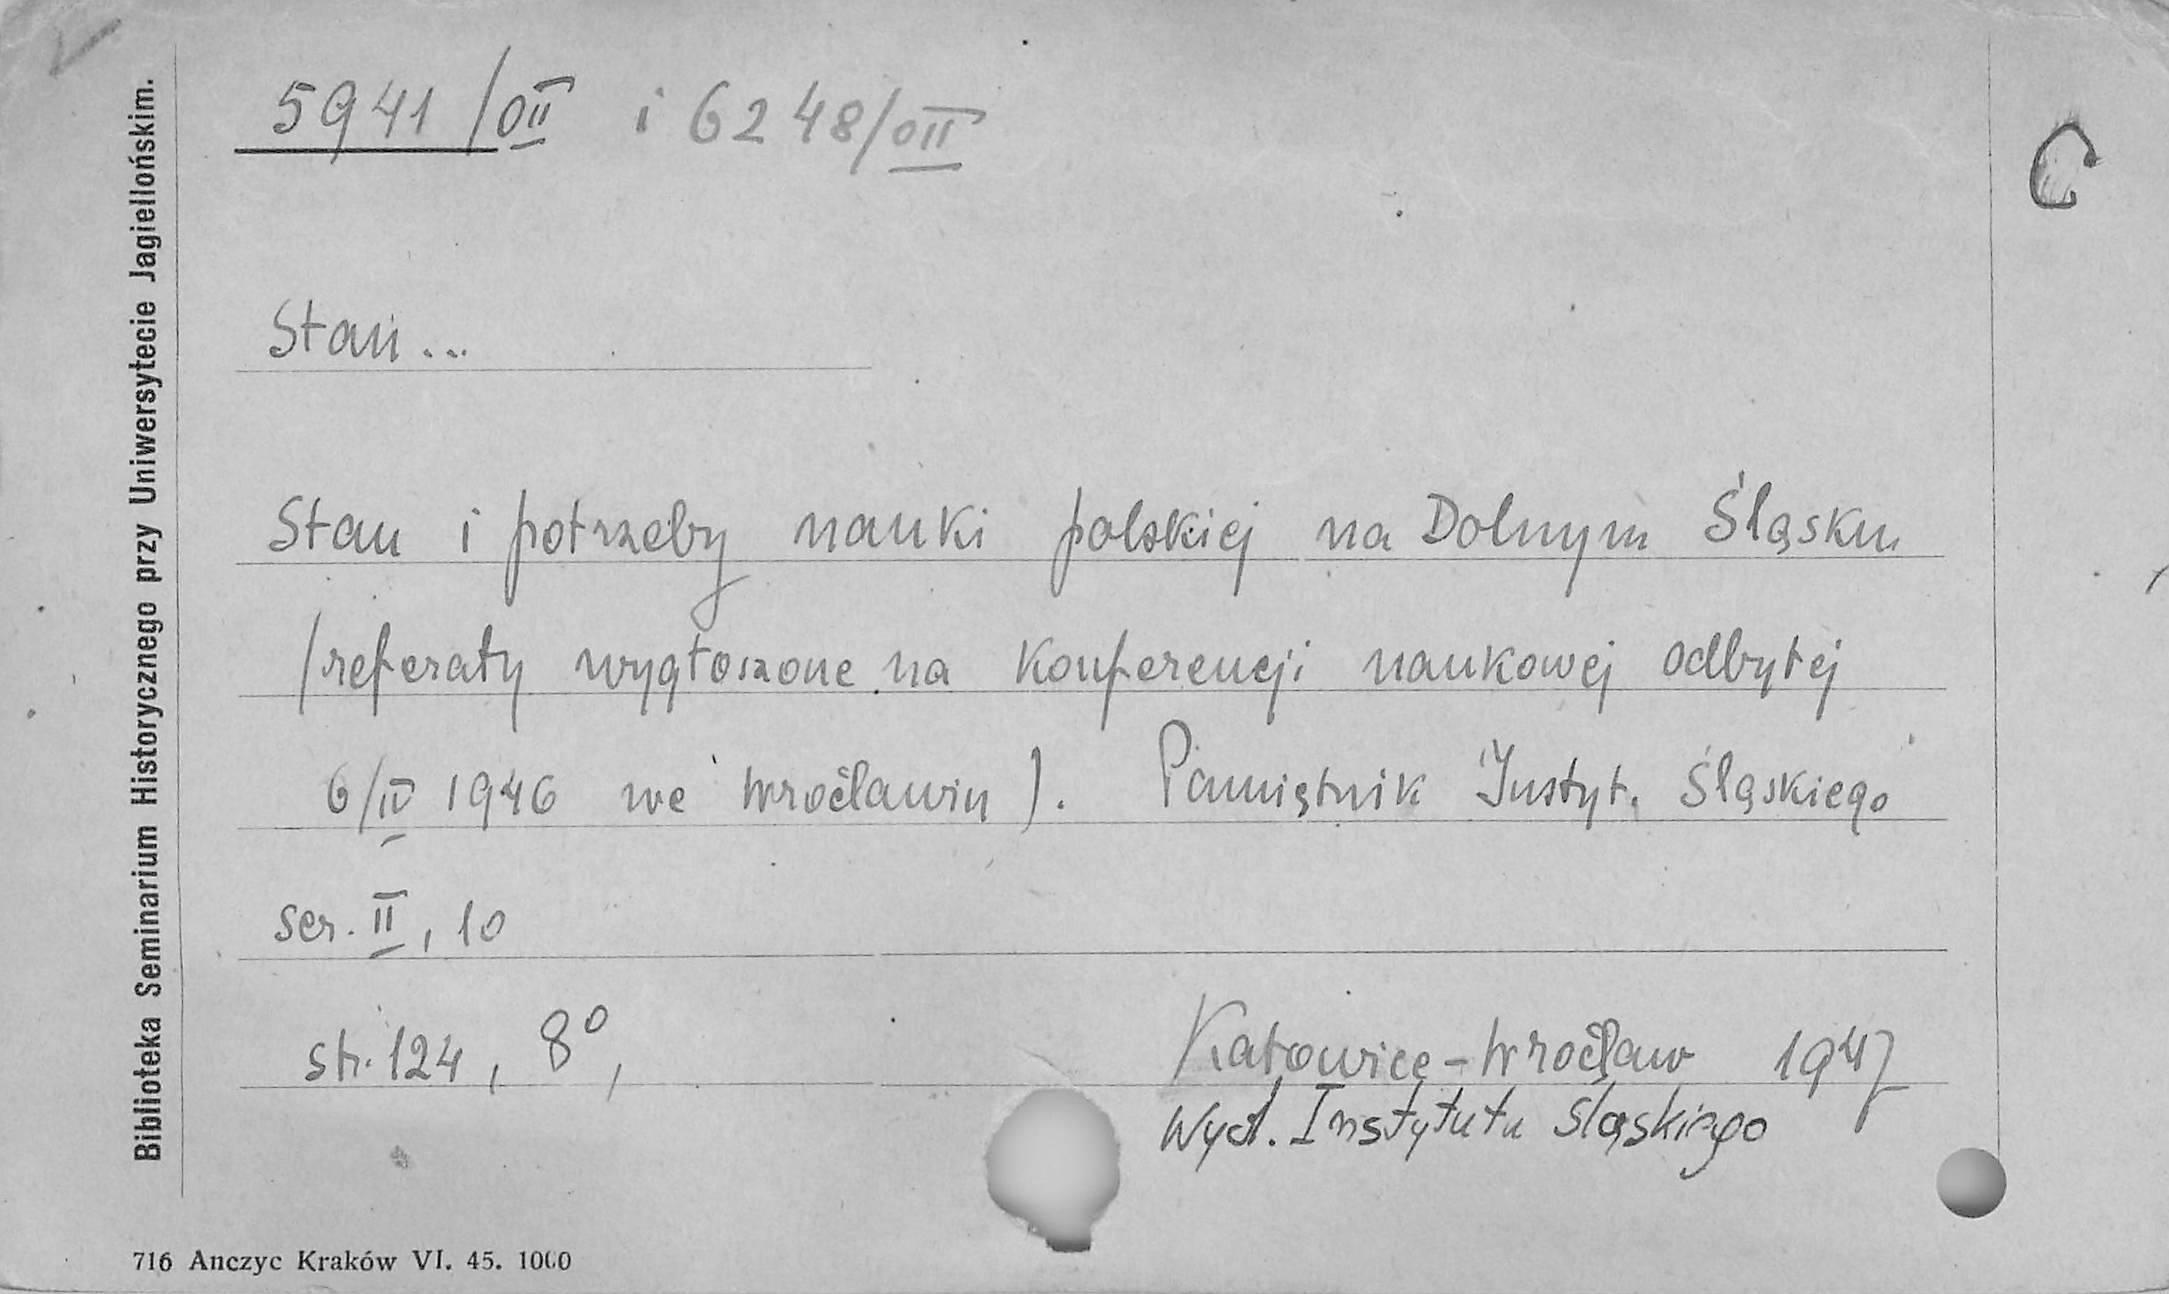 5941/OII i 6248/OII
C
Stan...
Stan i potrzeby nauki polskiej na Dolnym Śląsku
/referaty wygłoszone na Konferencji naukowej odbytej
6/IV 1946 we Wrocławiu). Pamiętnik Instyt. Śląskiego
ser. II, 10
str. 124, 8°,
Katowice-Wrocław 1947
Wyd. Instytutu śląskiego
Biblioteka Seminarium Historycznego przy Uniwersytecie Jagiellońskim.
716 Anczyc Kraków VI. 45. 1000